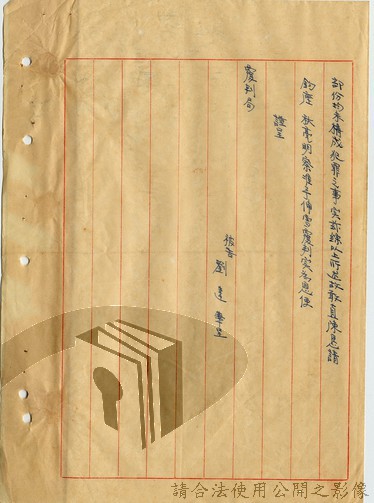 部份均未構成犯罪之事实茲綜以上所述故敢直陳懇請
鈞座 秋毫明察准予傳案覆判实為恩便
謹呈
覆判局
被告 劉達華呈
請合法使用公開之影像